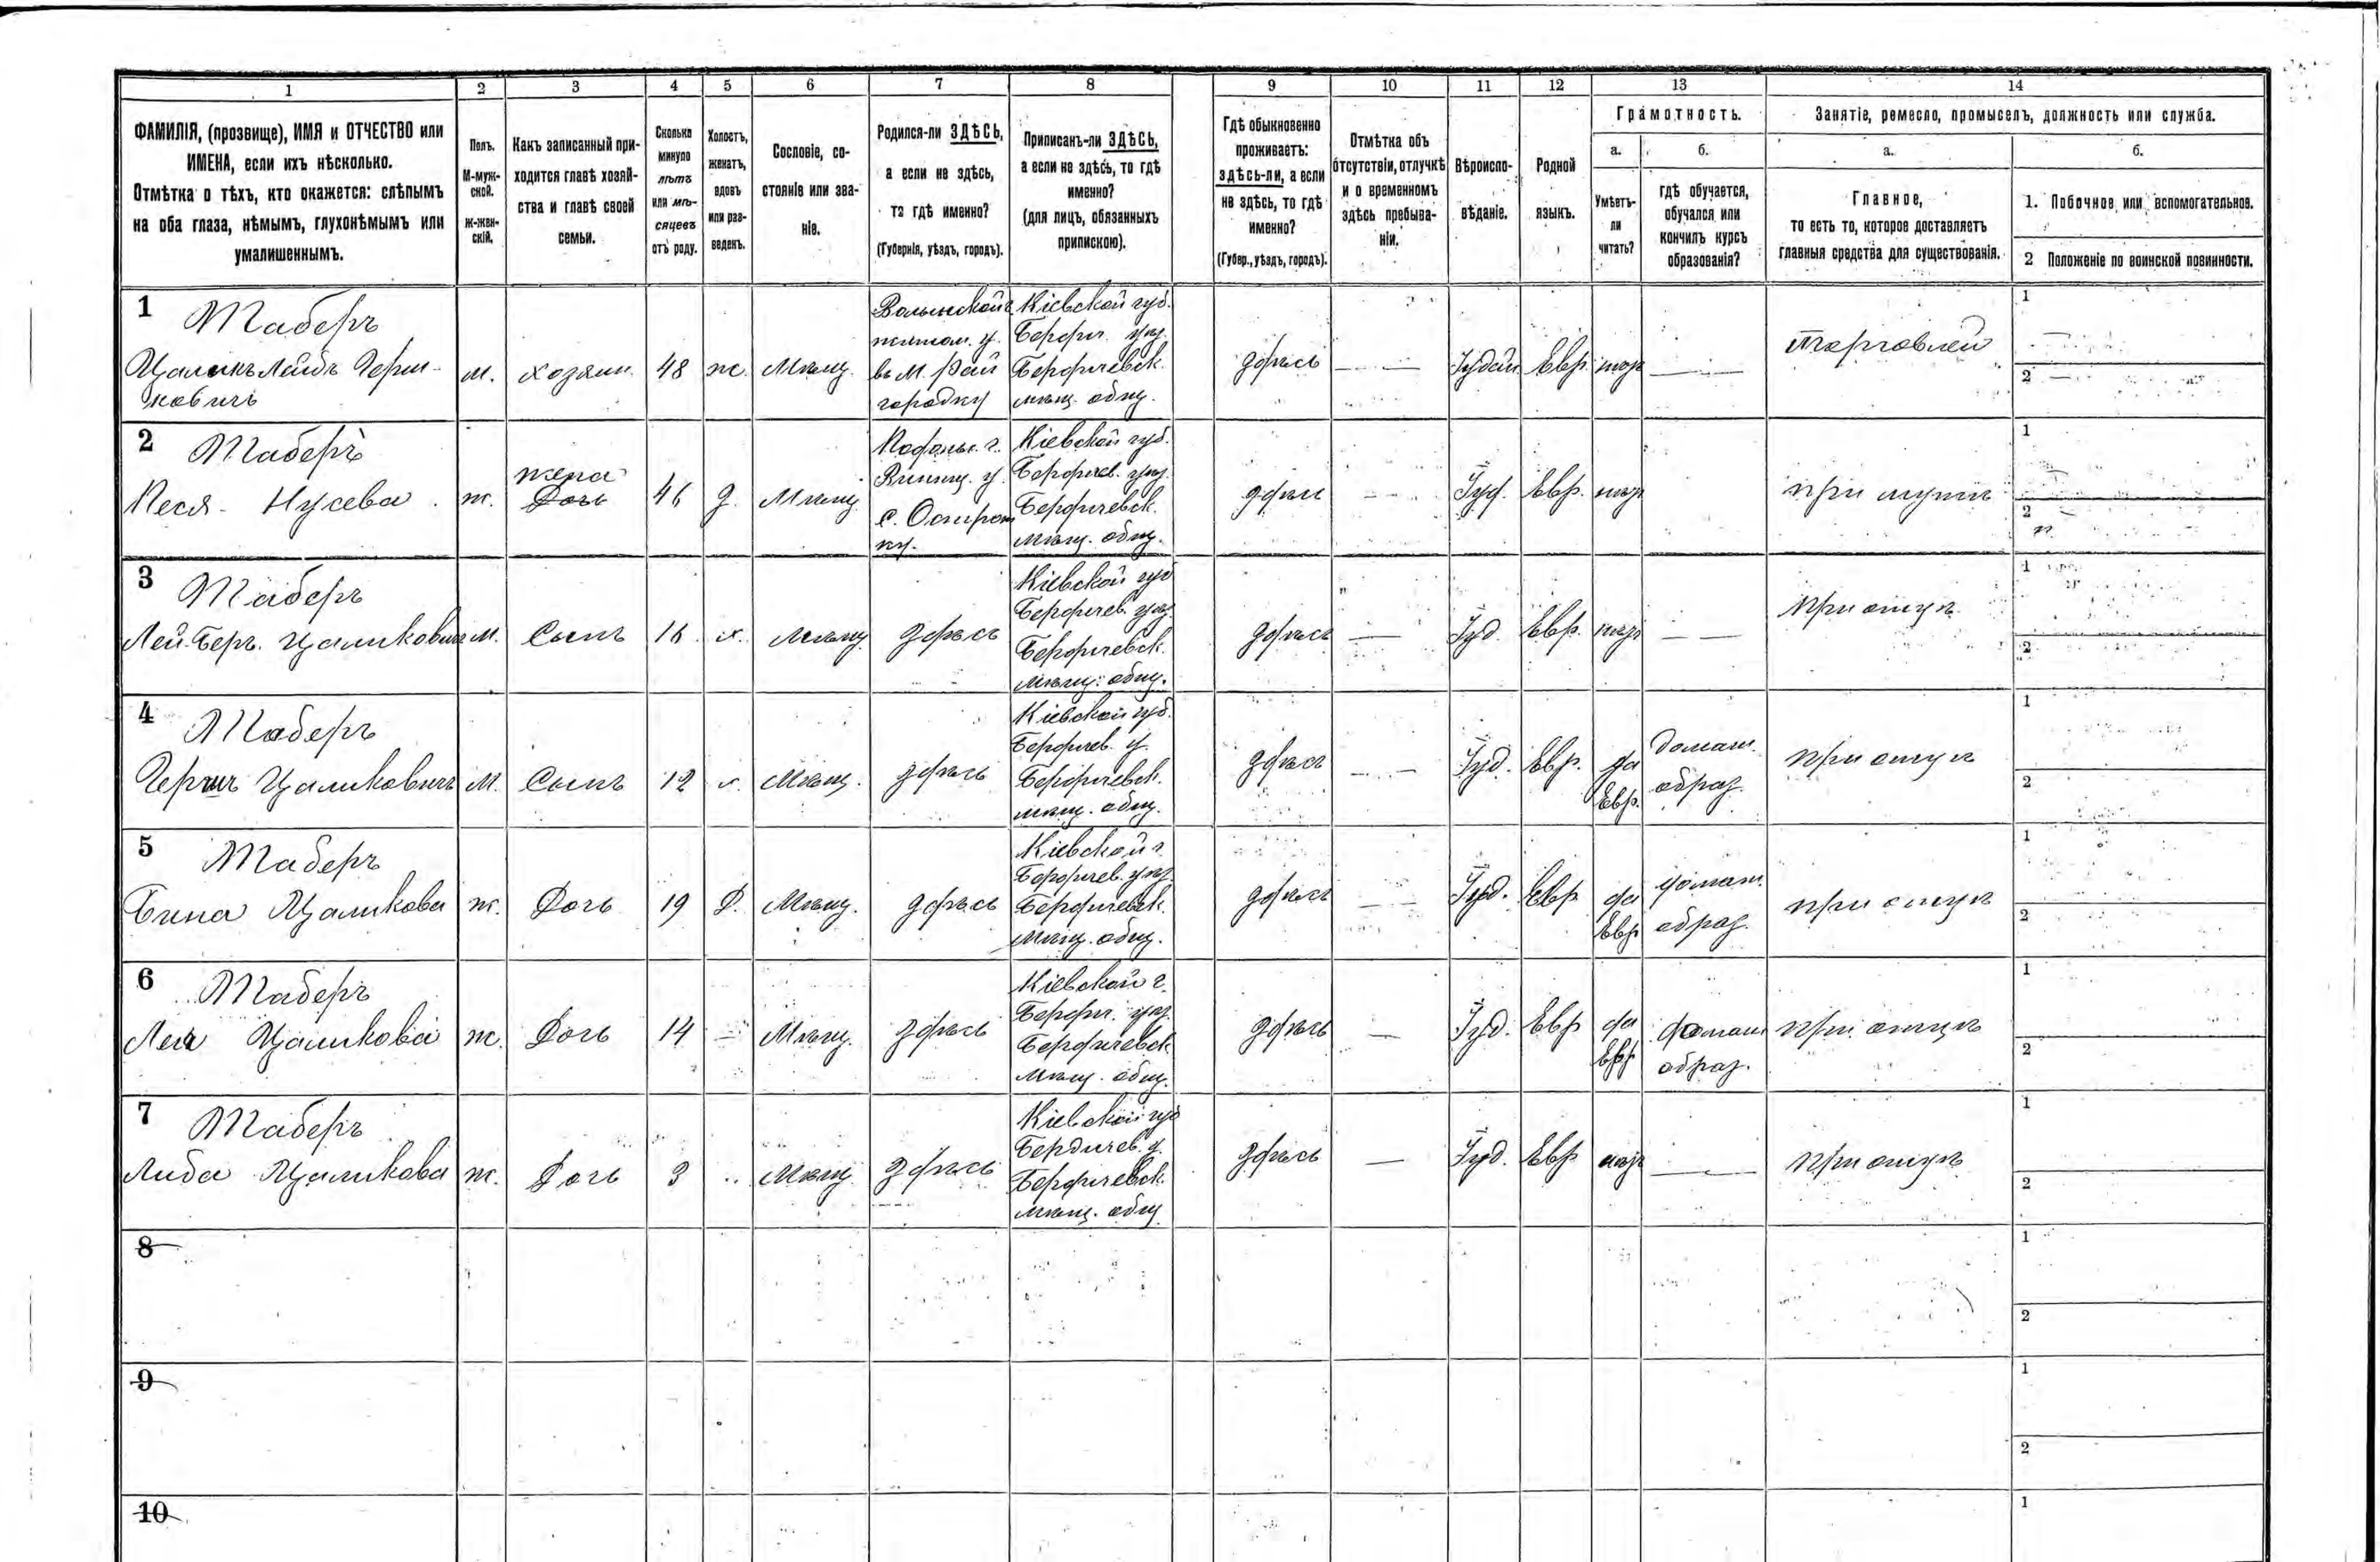 1 2 3 4 5 6 7 8 9 10 11 12 13 14
ФАМИЛІЯ, (прозвище), ИМЯ и ОТЧЕСТВО или
ИМЕНА, если ихъ нѣсколько.
Отмѣтка о тѣхъ, кто окажется: слѣпымъ
на оба глаза, нѣмымъ, глухонѣмымъ или
умалишеннымъ.
Полъ.
М-муж-
ской.
Ж-жен-
скій.
Какъ записанный при-
ходится главѣ хозяй-
ства и главѣ своей
семьи.
Сколько
минуло
лѣтъ
или мѣ-
сяцевъ
отъ роду.
Холостъ,
женатъ,
вдовъ
или раз-
веденъ.
Сословіе, со-
стояніе или зва-
ніе.
Родился-ли ЗДѢСЬ,
а если не здѣсь,
то гдѣ именно?
(Губернія, уѣздъ, городъ).
Приписанъ-ли ЗДѢСЬ,
а если не здѣсь, то гдѣ
именно?
(для лицъ, обязанныхъ
припискою).
Гдѣ обыкновенно
проживаетъ:
здѣсь-ли, а если
не здѣсь, то гдѣ
именно?
(Губер., уѣздъ, городъ).
Отмѣтка объ
отсутствіи, отлучкѣ
и о временномъ
здѣсь пребыва-
ніи.
Вѣроиспо-
вѣданіе.
Родной
языкъ.
Грамотность.
а. б.
Умѣетъ-
ли
читать?
гдѣ обучается,
обучался или
кончилъ курсъ
образованія?
Занятіе, ремесло, промыселъ, должность или служба.
а. б.
Главное,
то есть то, которое доставляетъ
главныя средства для существованія.
1. Побочное или вспомогательное.
2 Положеніе по воинской повинности.
1 Таберъ
Цаликъ Лейбъ Герш-
ковичъ
м.
хозяин.
48
ж.
Мѣщ.
Волынской г.
житом. у.
въ М. Рай
городку
Кіевской губ.
Бердич. уѣз.
Бердичевск.
мѣщ. общ.
здѣсь
Іудей.
Евр.
нѣт
торговлей
1
2
2 Таберъ
Песя Нусева
ж.
жена
Дочь
46
з.
Мѣщ.
Подольс. г.
Винниц. у.
с.
Кіевской губ.
Бердичев. уѣз.
Бердичевск.
мѣщ. общ.
здѣсь
Іуд.
Евр.
нѣт
при мужѣ
1
2
3 Таберъ
Лей-Беръ Цаликовичъ
м.
Сынъ
16
х.
Мѣщ.
здѣсь
Кіевской губ
Бердичев. уѣз.
Бердичевск.
мѣщ. общ.
здѣсь
Іуд.
Евр.
нѣт
при отцѣ
1
2
4 Таберъ
Гершъ Цаликовичъ
М.
Сынъ
12
х.
Мѣщ.
здѣсь
Кіевской губ.
Бердичев. у.
Бердичевск.
мѣщ. общ.
здѣсь
Іуд.
Евр.
да
Евр.
домаш.
образ.
при отцѣ
1
2
5 Таберъ
Бина Цаликова
ж.
Дочь
19
Д.
Мѣщ.
здѣсь
Кіевской г.
Бердичев. уѣз.
Бердичевск.
мѣщ. общ.
здѣсь
Іуд.
Евр
да
Евр
домаш.
образ.
при отцѣ
1
2
6 Таберъ
Лея Цаликова
ж.
Дочь
14
Мѣщ.
здѣсь
Кіевской г.
Бердич. уѣз.
Бердичевск
мѣщ. общ.
здѣсь
Іуд.
Евр
да
Евр
домаш
образ.
при отцѣ
1
2
7 Таберъ
Либа Цаликова
ж.
Дочь
3
Мѣщ.
здѣсь
Кіевской губ
Бердичев. у.
Бердичевск.
мѣщ. общ
здѣсь
Іуд.
Евр
нѣт
при отцѣ
1
2
8
1
2
9
1
2
10
1